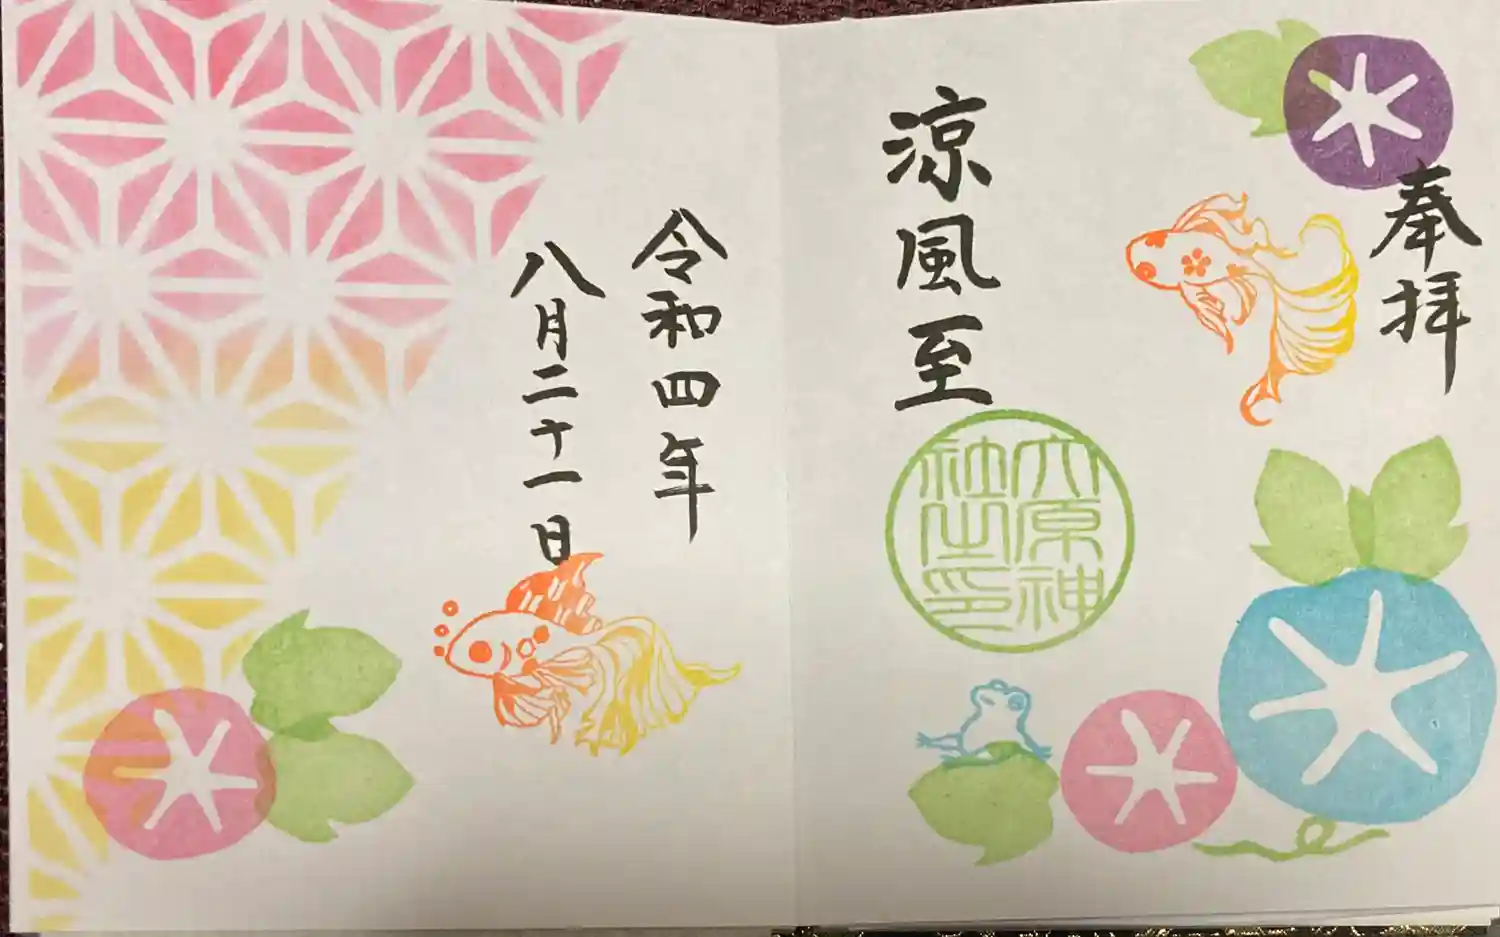 奉拝
涼風至
六原神
社之印
令和四年
八月二十一日